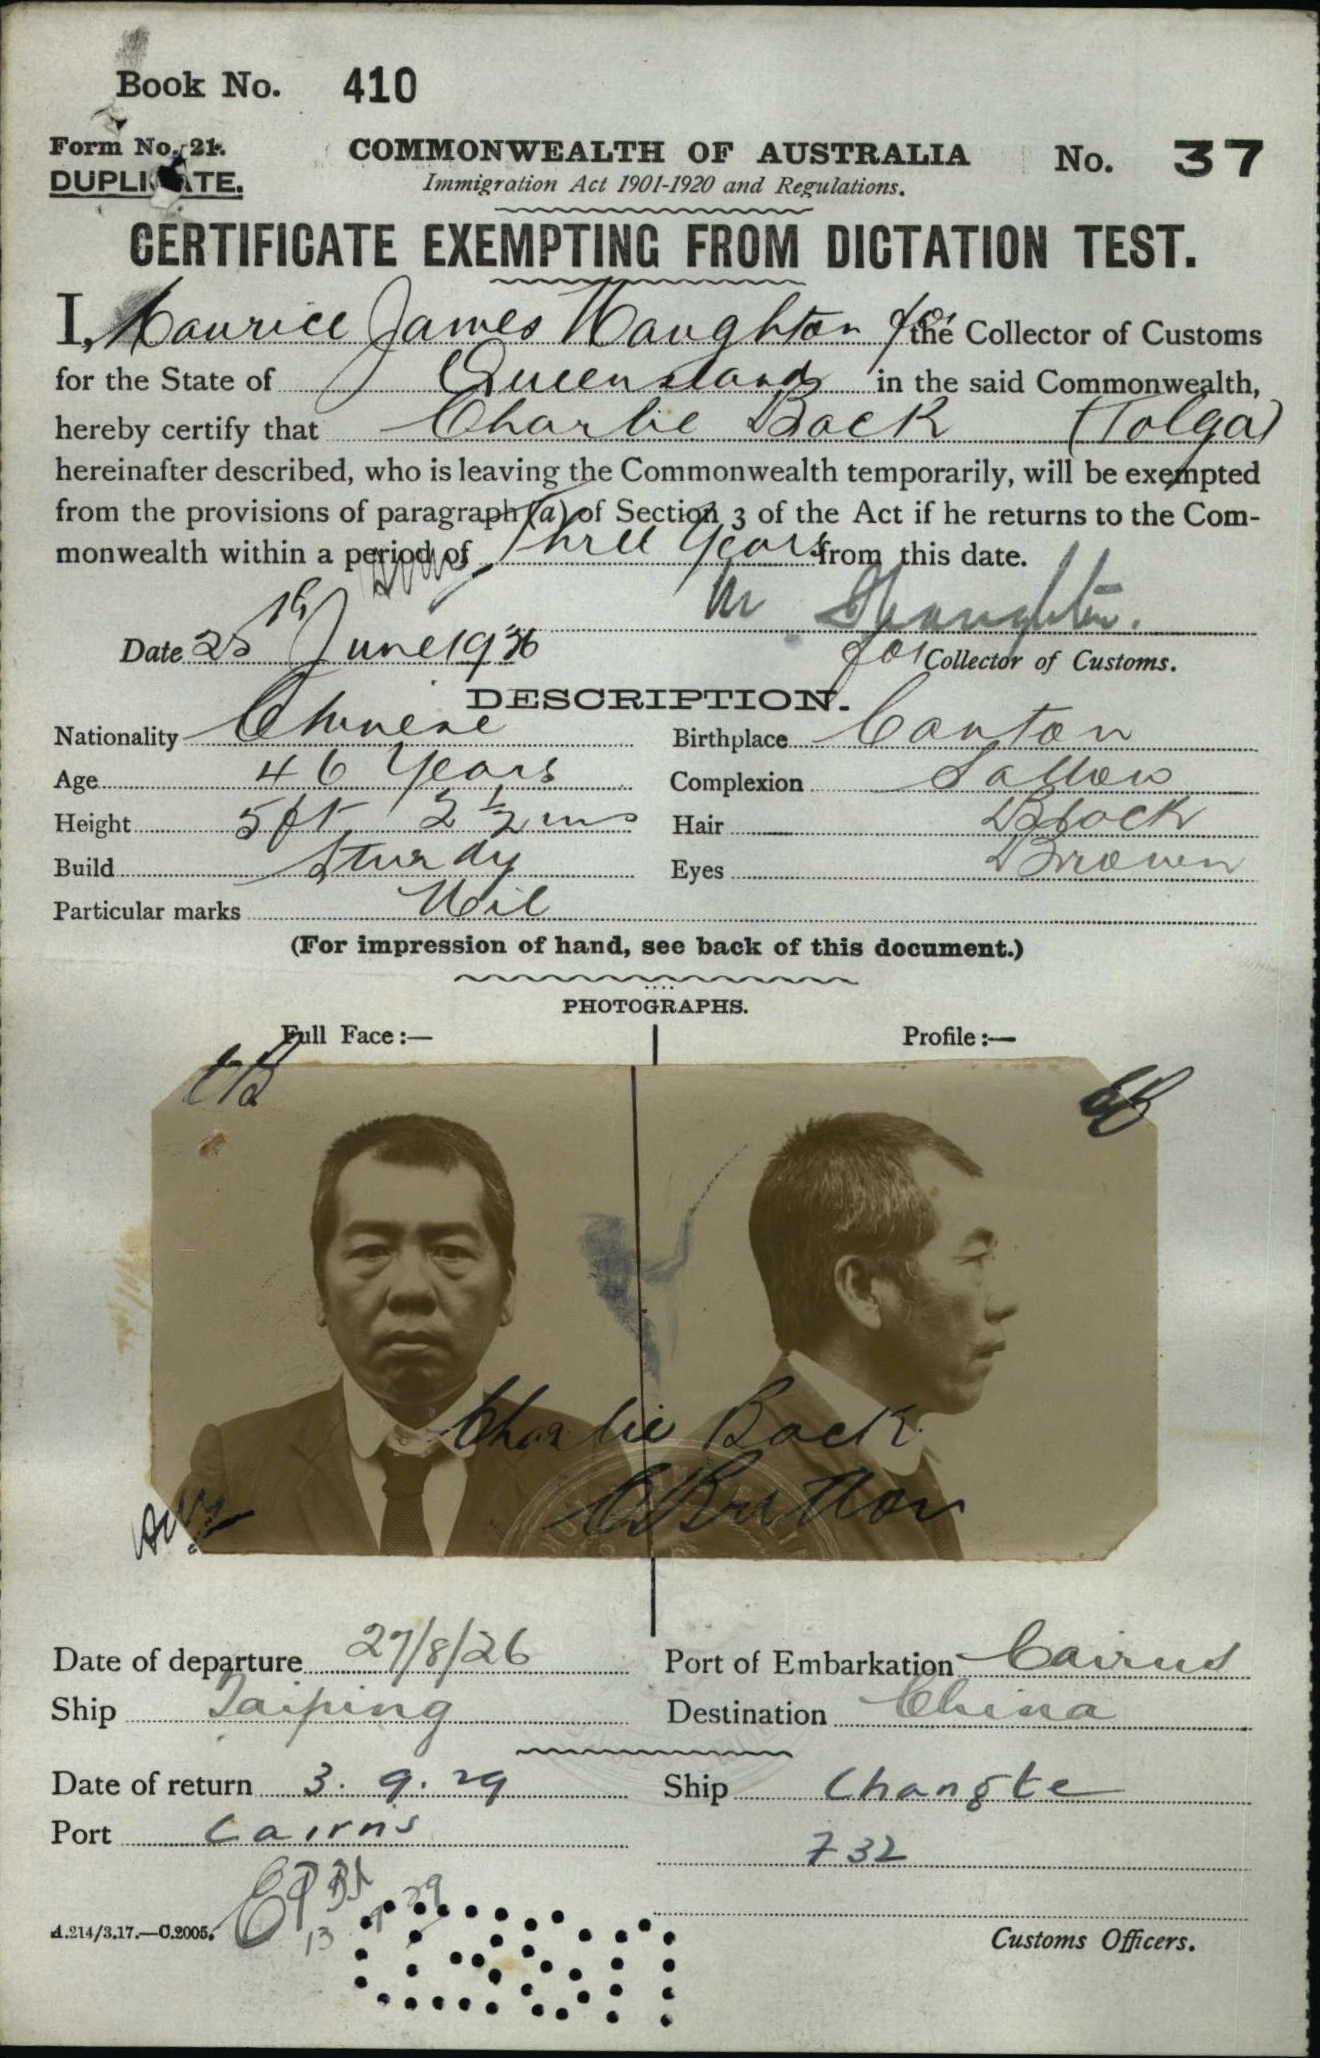 Book No. 410
Form No. 21.
DUPLICATE.
COMMONWEALTH OF AUSTRALIA
Immigration Act 1901-1920 and Regulations.
No. 37
CERTIFICATE EXEMPTING FROM DICTATION TEST.
I, Maurice James Naughton for the Collector of Customs
for the State of Queensland in the said Commonwealth,
hereby certify that Charlie Back (Tolga)
hereinafter described, who is leaving the Commonwealth temporarily, will be exempted
from the provisions of paragraph (a) of Section 3 of the Act if he returns to the Com-
monwealth within a period of Three Years from this date.
M J Naughton.
Date 25th June 1926
for Collector of Customs.
DESCRIPTION.
Nationality Chinese Birthplace Canton
Age 46 Years Complexion Sallow
Height 5 ft 2 ½ ins Hair Black
Build Sturdy Eyes Brown
Particular marks Nil
(For impression of hand, see back of this document.)
PHOTOGRAPHS.
Full Face :— Profile :—
CB
CB
Charlie Back
Date of departure 27/8/26 Port of Embarkation Cairns
Ship Taiping Destination China
Date of return 3. 9. 29 Ship Changte
Port Cairns
732
13 9 29
A.214/3.17.—C.2005.
Customs Officers.